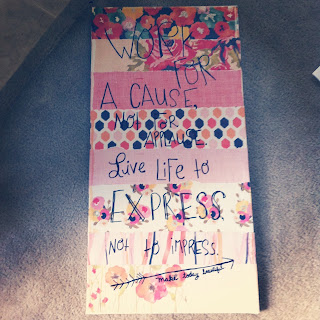 WORK
FOR
A CAUSE,
NOT FOR
APPLAUSE.
Live LiFe to
EXPRESS.
Not to impress.
make today beautiful